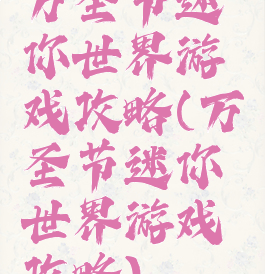 万圣节迷
你世界游
戏攻略(万
圣节迷你
世界游戏
攻略)